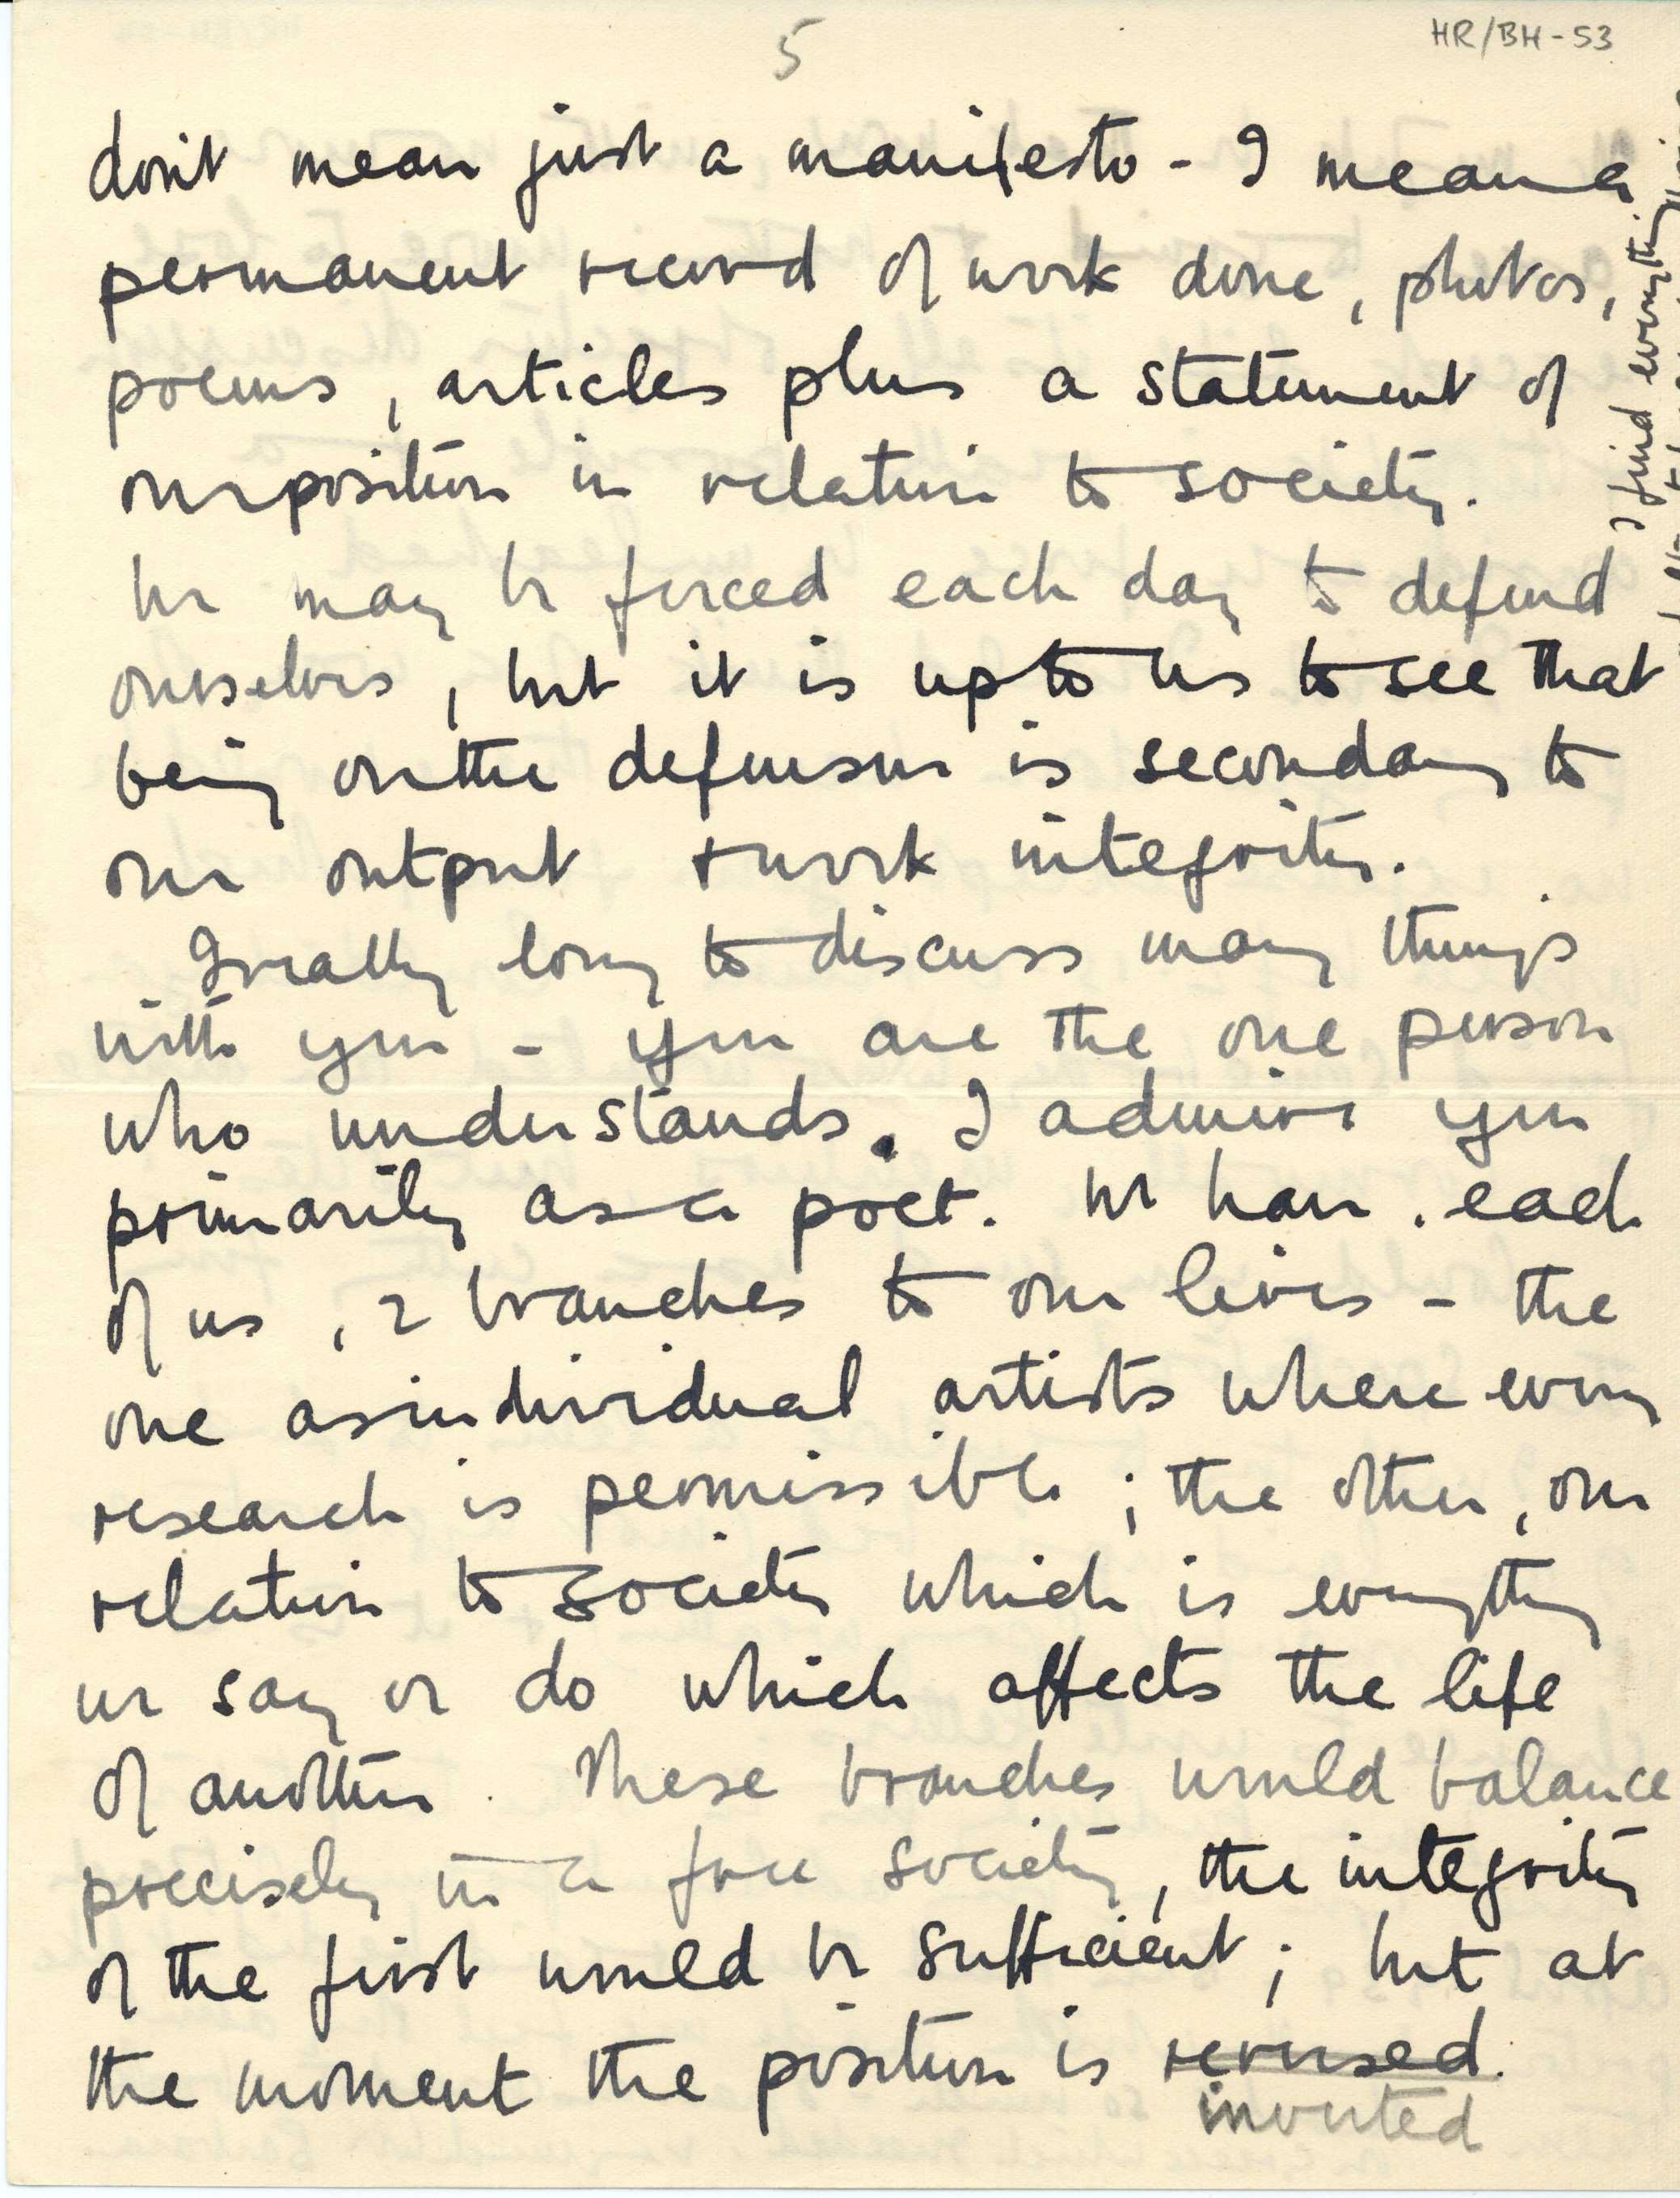 5
HR/BH-53
don't mean just a manifesto - I mean a
permanent record of work done, photos,
poems, articles plus a statement of
our position in relation to society.
We may be forced each day to defend
ourselves, but it is up to us to see that
being on the defensive is secondary to
our output & work integrity.
I really long to discuss many things
with you - you are the one person
who understands. I admire you
primarily as a poet. We have, each
of us, 2 branches to our lives - the
one as individual artists where every
research is permissible; the other, our
relation to society which is everything
we say or do which affects the life
of another. These branches would balance
precisely in a free society, the integrity
of the first would be sufficient; but at
the moment the position is reversed.
inverted
I find everything